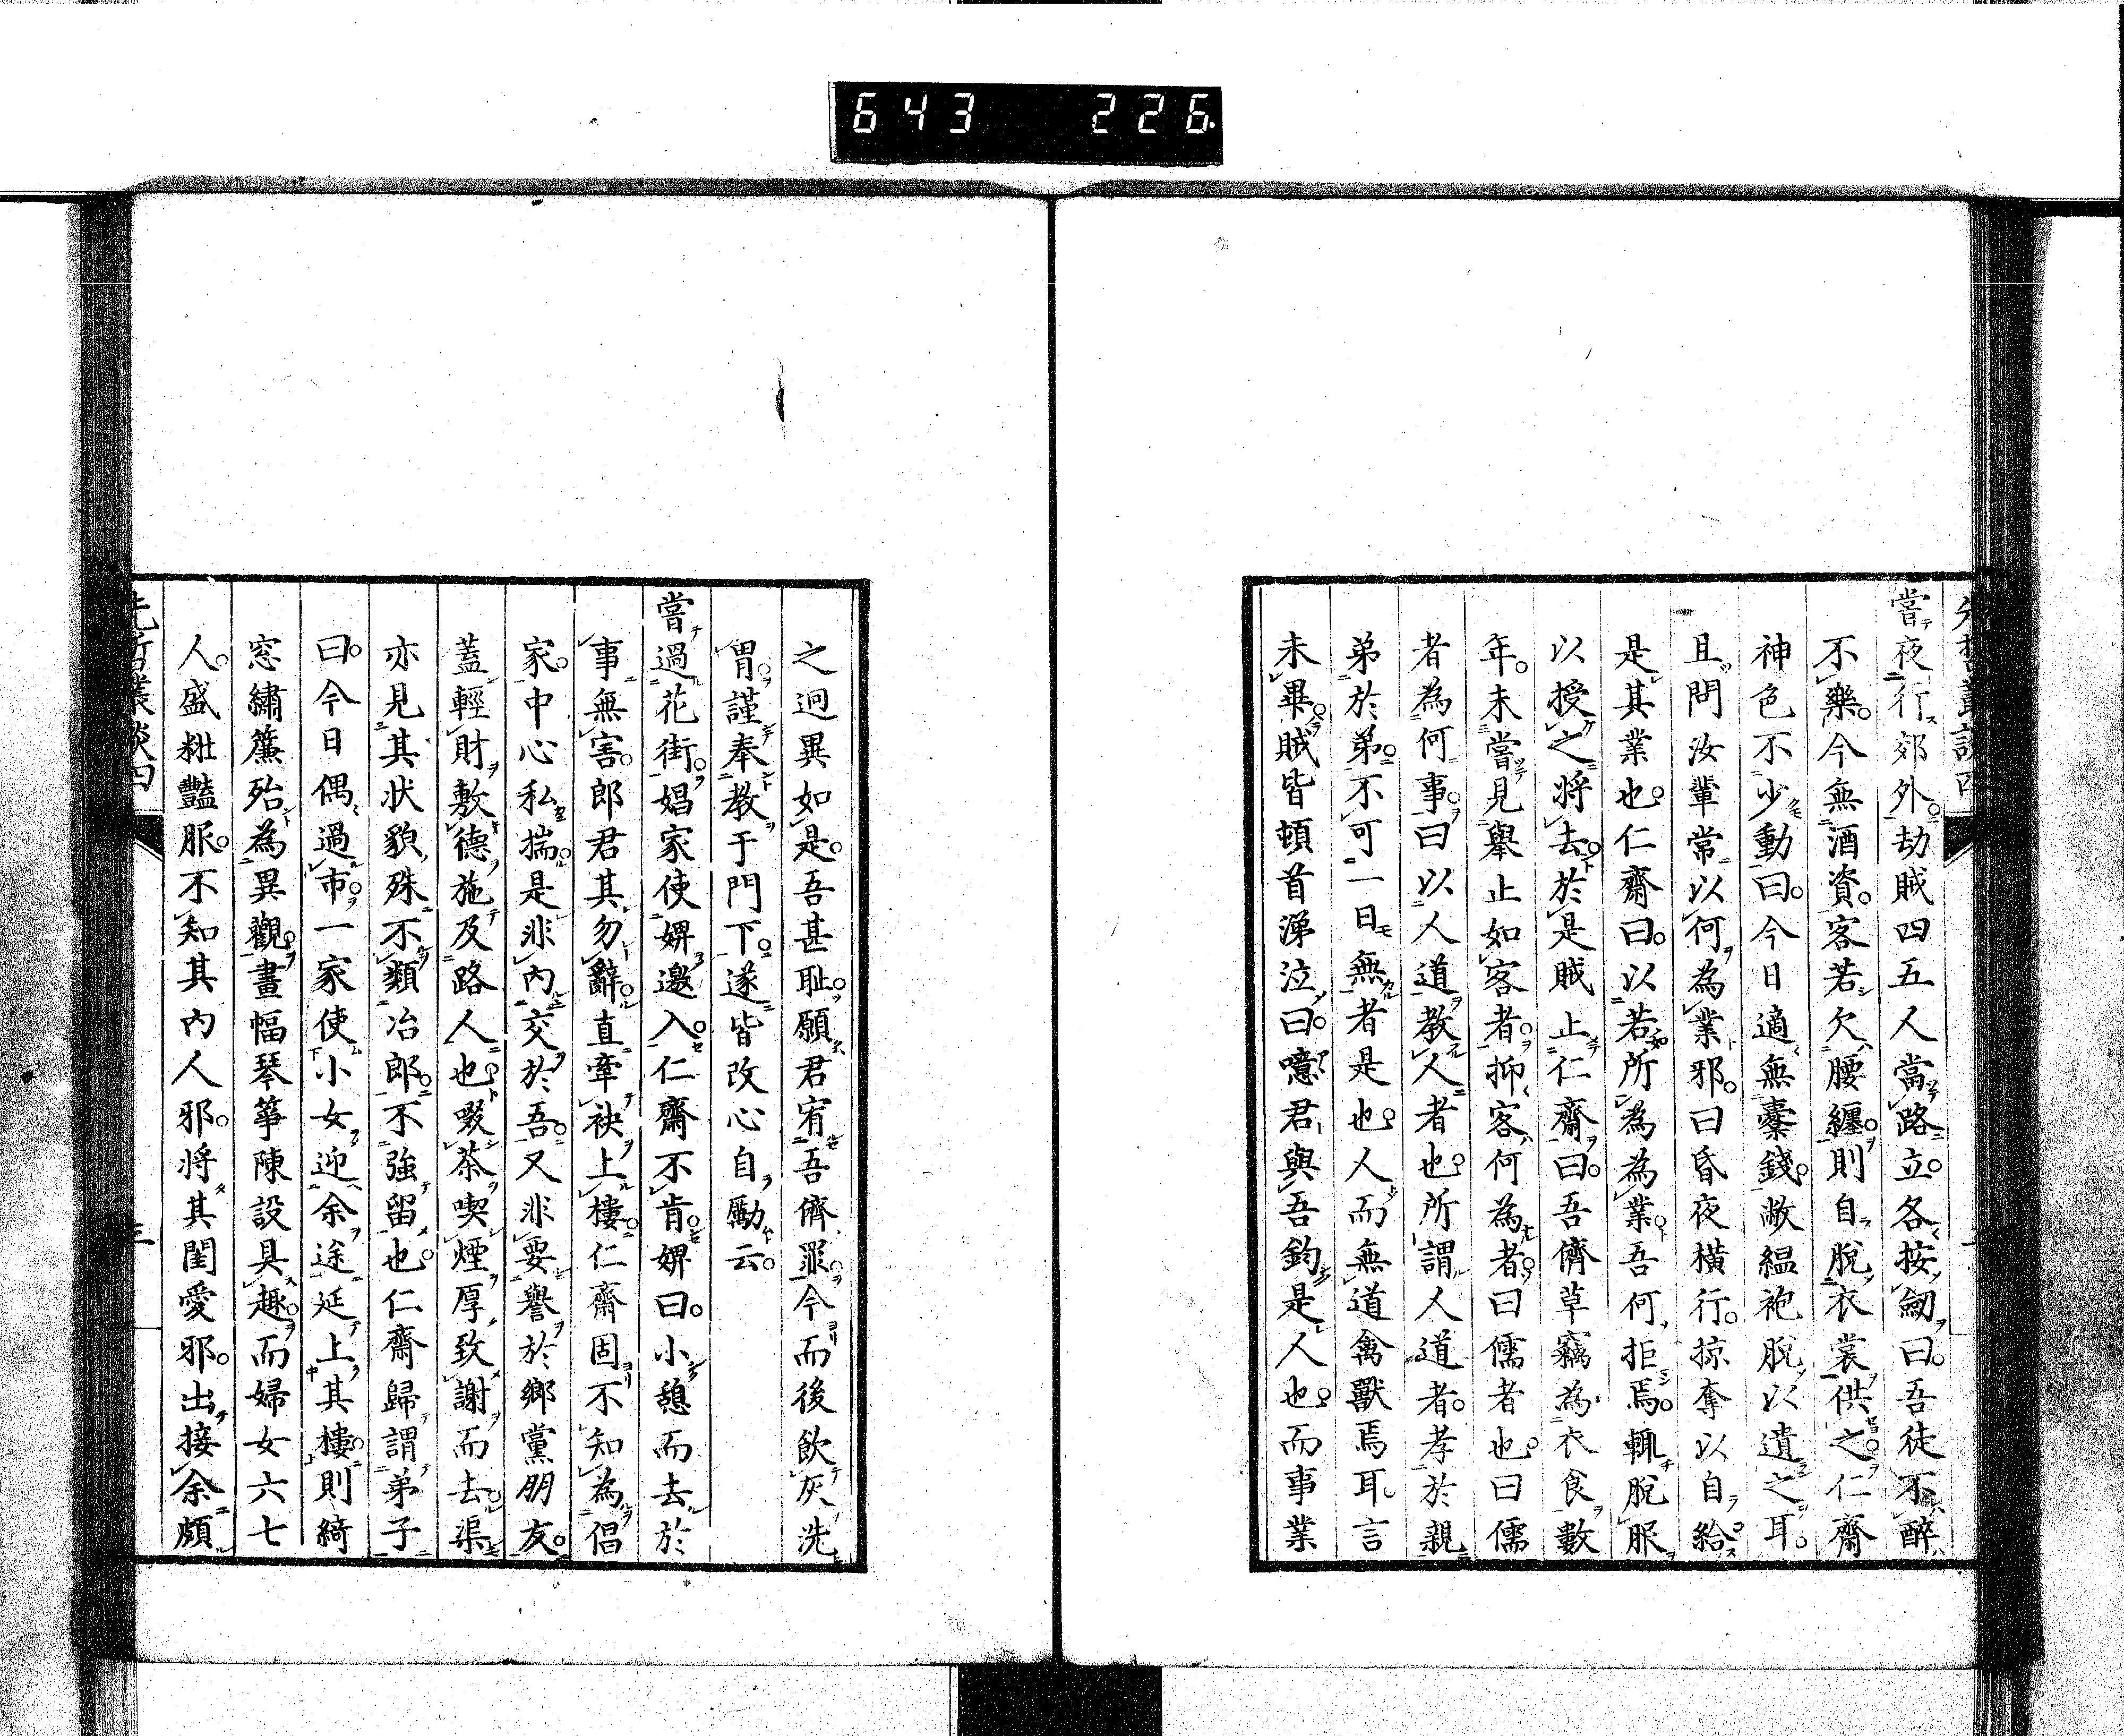 643 226
嘗夜行郊外劫賊四五人當路立各按劒曰吾徒不醉
不樂今無酒資客若欠腰纏則自脫衣裳供之仁齋
神色不少動曰今日適無橐錢敝縕袍脫以遺之耳
且問汝輩常以何為業邪曰昏夜橫行掠奪以自給
是其業也仁齋曰以若所為為業吾何拒焉輒脫服
以授之將去於是賊止仁齋曰吾儕草竊為衣食數
年未嘗見舉止如客者抑客何為者曰儒者也曰儒
者為何事曰以人道教人者也所謂人道者孝於親
弟於弟不可一日無者是也人而無道禽獸焉耳言
未畢賊皆頓首涕泣曰噫君與吾鈞是人也而事業
之迥異如是吾甚耻願君宥吾儕罪今而後飲灰洗
胃謹奉教于門下遂皆改心自勵云
嘗過花街娼家使婢邀入仁齋不肯婢曰小憩而去於
事無害郎君其勿辭直牽袂上樓仁齋固不知為倡
家中心私揣是非內交於吾又非要譽於鄉黨朋友
蓋輕財敷德施及路人也啜茶喫煙厚致謝而去渠
亦見其狀貌殊不類冶郎不強留也仁齋歸謂弟子
曰今日偶過市一家使小女迎余途延上其樓則綺
窓繡簾殆為異觀畫幅琴箏陳設具趣而婦女六七
人盛粧豔服不知其內人邪將其閨愛邪出接余頗